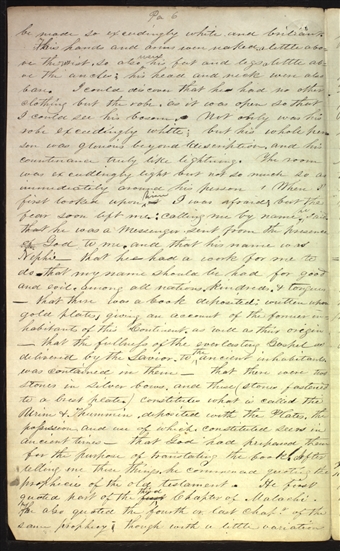 Pa 6
be made so exceedingly white and brilliant
His hands and arms were naked a little abo-
ve the wrist. So also were his feet and legs a little ab
ove the ancles; his head and neck were also
bare. I could discover that he had no other
clothing but the robe, as it was open so that
I could see his bosom. Not only was his
robe exceedingly white; but his whole per-
son was glorious beyond description and his
countenance truly like lightning. The room
was exceedingly light but not so much so as
immediately around his person. When I
first looked upon him I was afraid; but the
fear soon left me; calling me by name
that he was a Messenger sent from the presence
of God to me, and that his name was
Nephi. that he had a work for me to
do that my name should be had for good
and evil, among all nations, Kindred, & tongue
— that there was a book deposited; written upon
gold plates, giving an account of the former in-
habitants of this Continent, as well as this origin
— that the fullness of the everlasting Gospel as
delivered by the Savior to the ancient inhabitants
was contained in them — that there were two
stones in silver bows, and these stones fastened
to a breast plate constitutes what is called the
Urim & Thummim, deposited with the Plates, the
possession and use of which constituted seers in
ancient times — that God had prepared them
for the purpose of translating the book. After
telling me these things, he commenced quoting the
prophecies of the old testament. He first
quoted part of the third Chapter of Malachi.
He also quoted the fourth or last Chap: of the
same prophecy; though with a little variation